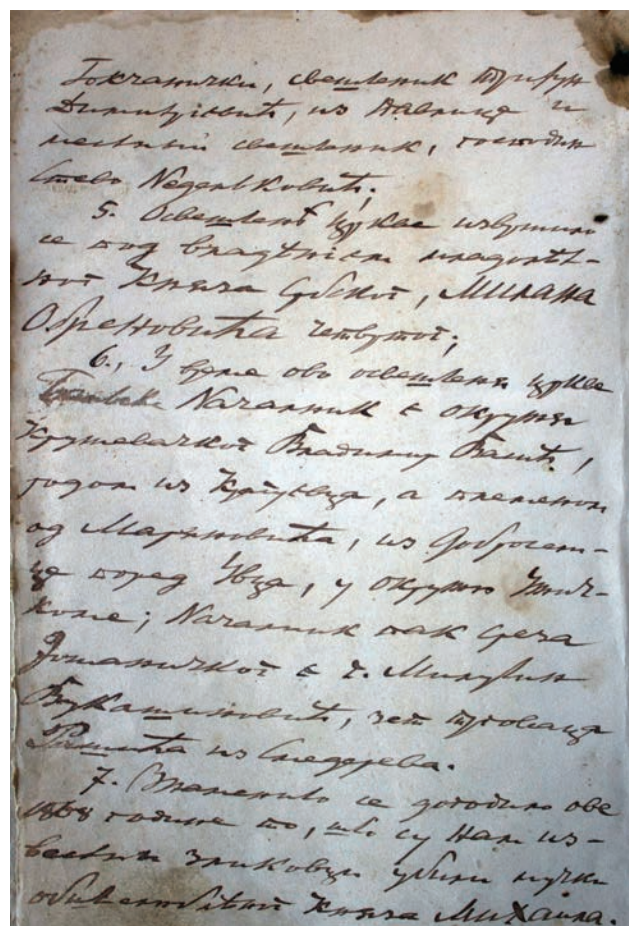 Гокчанички, свештеник Трифун
Димитриевић, из Павлице и
местный свештеник, господин
Стево Неделковић;
5. Освештенѣ цркве извршило
се под владѣнїем младолѣт-
ног Княза Србског, Милана
Обреновића четвртог;
6., У време ово освештеня цркве
Началник є окружия
Крушевачког Владимир
родом из а племеном
од Мариновића, из
це поред Увца, у округу Ужич-
коме; Началник пак среза
Јошаничког є г. Милутин
Вукашиновић, зет трговаца
из Смедерева.
7. Знаменито се догодило ове
1868 године то, што су нам из-
вестни зликовци убили мучки
Княза Михаила.